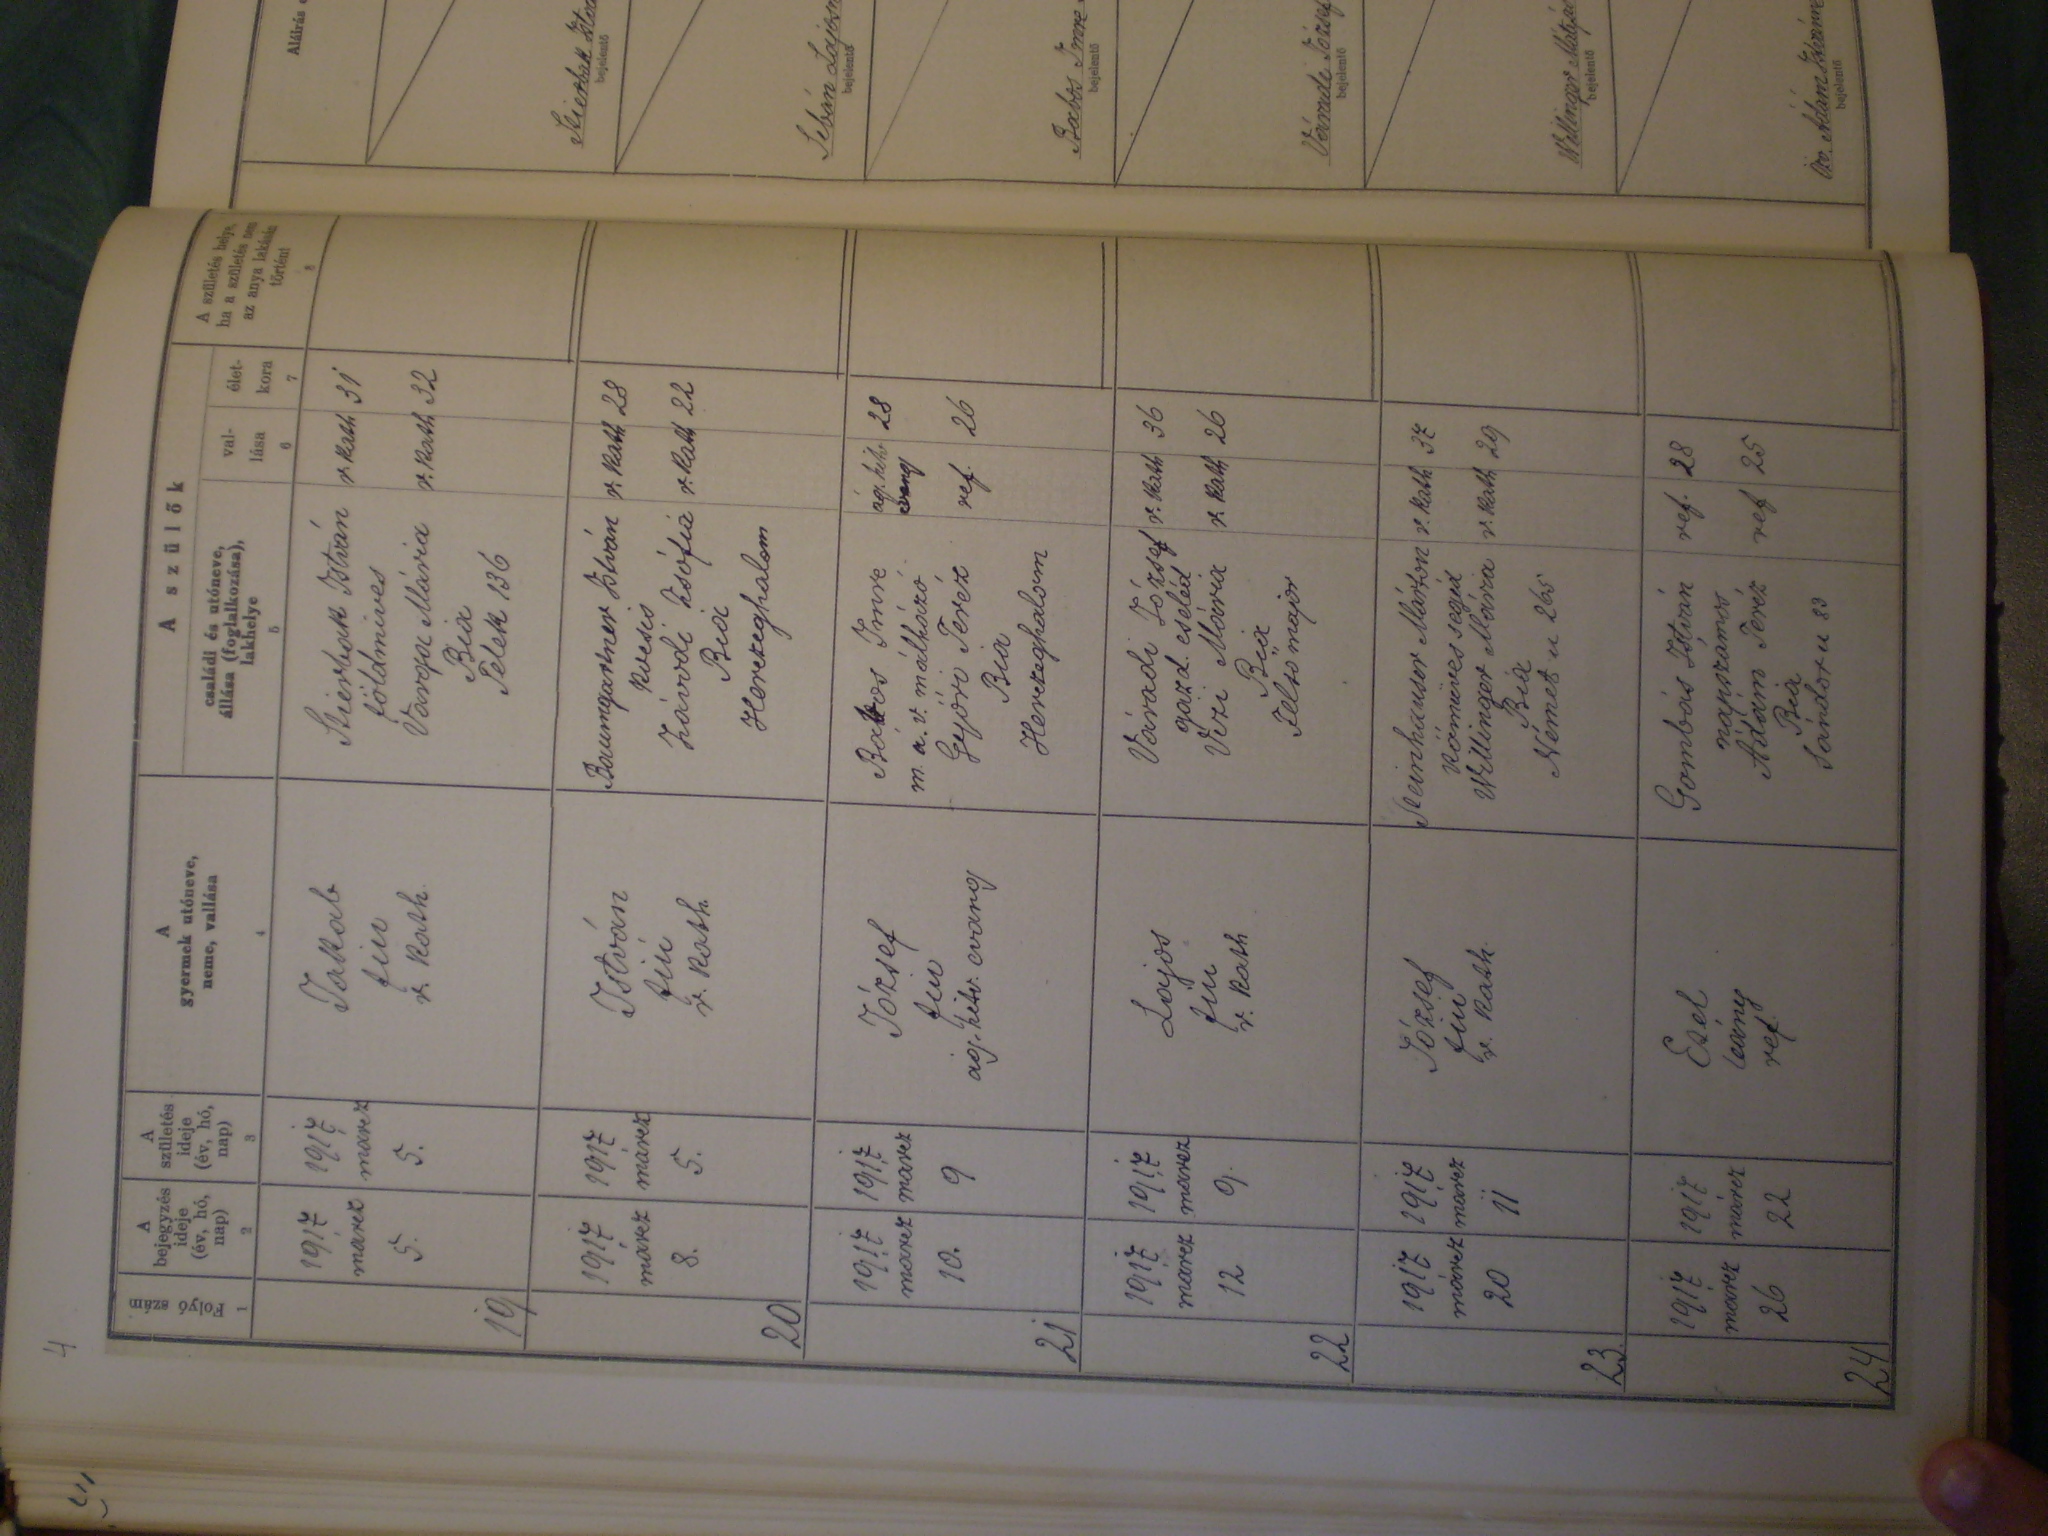 4
Folyó
szám
1
A
bejegyzés
ideje
(év, hó,
nap)
2
A
születés
ideje
(év, hó,
nap)
3
A
gyermek utóneve,
neme, vallása
4
A szülők
családi és utóneve,
állása (foglalkozása),
lakhelye
5
val-
lása
6
élet-
kora
7
A születés helye,
ha a születés nem
az anya lakásán
történt
8
Aláírás
19
1917
márcz
5.
1917
márcz
5.
Jakab
fiu
r. kath.
István
földmives
Varga Mária
Bia
Telek 136
r. kath 31
r. kath 32
bejelentő
20
1917
márcz
8.
1917
márcz
5.
István
fiu
r. kath.
Baumgartner István
kocsis
Závodi Zsófia
Bia
Herczeghalom
r. kath 28
r. kath 22
Lajos
bejelentő
21
1917
márcz
10.
1917
márcz
9
József
fiu
ág. hitv. evang
Imre
m. a. v.
Győri Teréz
Bia
Herczeghalom
ág. hitv.
evang
28
ref. 26
Imre
bejelentő
22
1917
márcz
12
1917
márcz
9.
Lajos
fiu
r. kath
Váradi József
gazd. cseléd
Mária
Bia
Felsőmajor
r. kath 36
r. kath 26
Váradi József
bejelentő
23
1917
márcz
20
1917
márcz
11
József
fiu
r. kath.
Steinhauser Márton
kőmüves segéd
Willinger Mária
Bia
Német u 265
r. kath 37
r. kath 29
Willinger Mátyás
bejelentő
24
1917
márcz
26
1917
márcz
22
leány
ref.
Gombás István
napszámos
Ádám Teréz
Bia
Sándor u 83
ref. 28
ref 25
Öv. Ádám
bejelentő